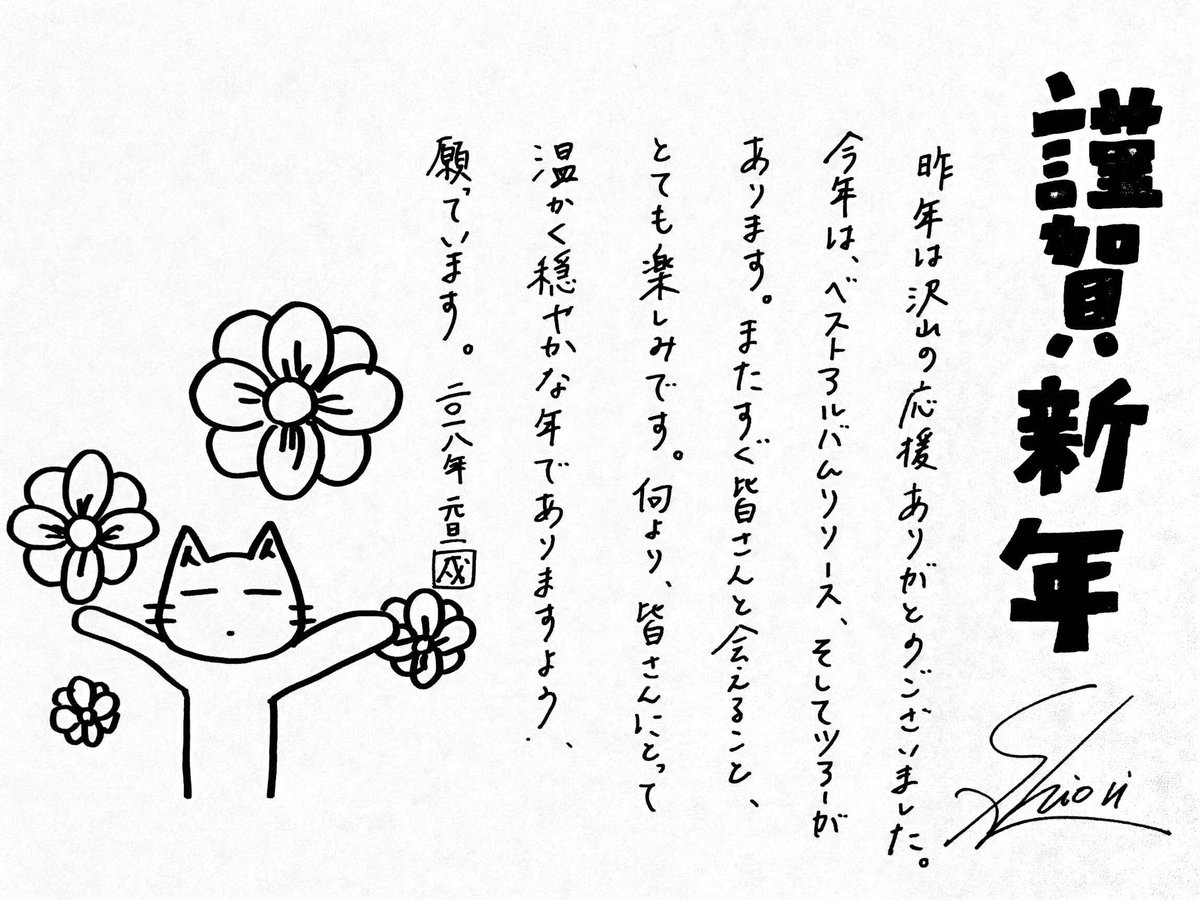 謹賀新年
Shiori
昨年は沢山の応援ありがとうございました。
今年は、ベストアルバムリリース、そしてツアーが
あります。またすぐ皆さんと会えること、
とても楽しみです。何より、皆さんにとって
温かく穏やかな年でありますよう、
願っています。二〇一八年 元旦 戌